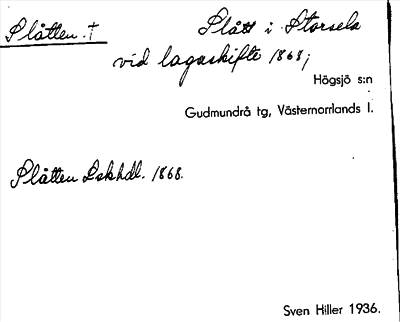 Slåtten. †
Slått i Storsela
vid lagaskifte 1868;
Högsjö s:n
Gudmundrå tg, Västernorrlands l.
Slåtten Lskhdl. 1868.
Sven Hiller 1936.